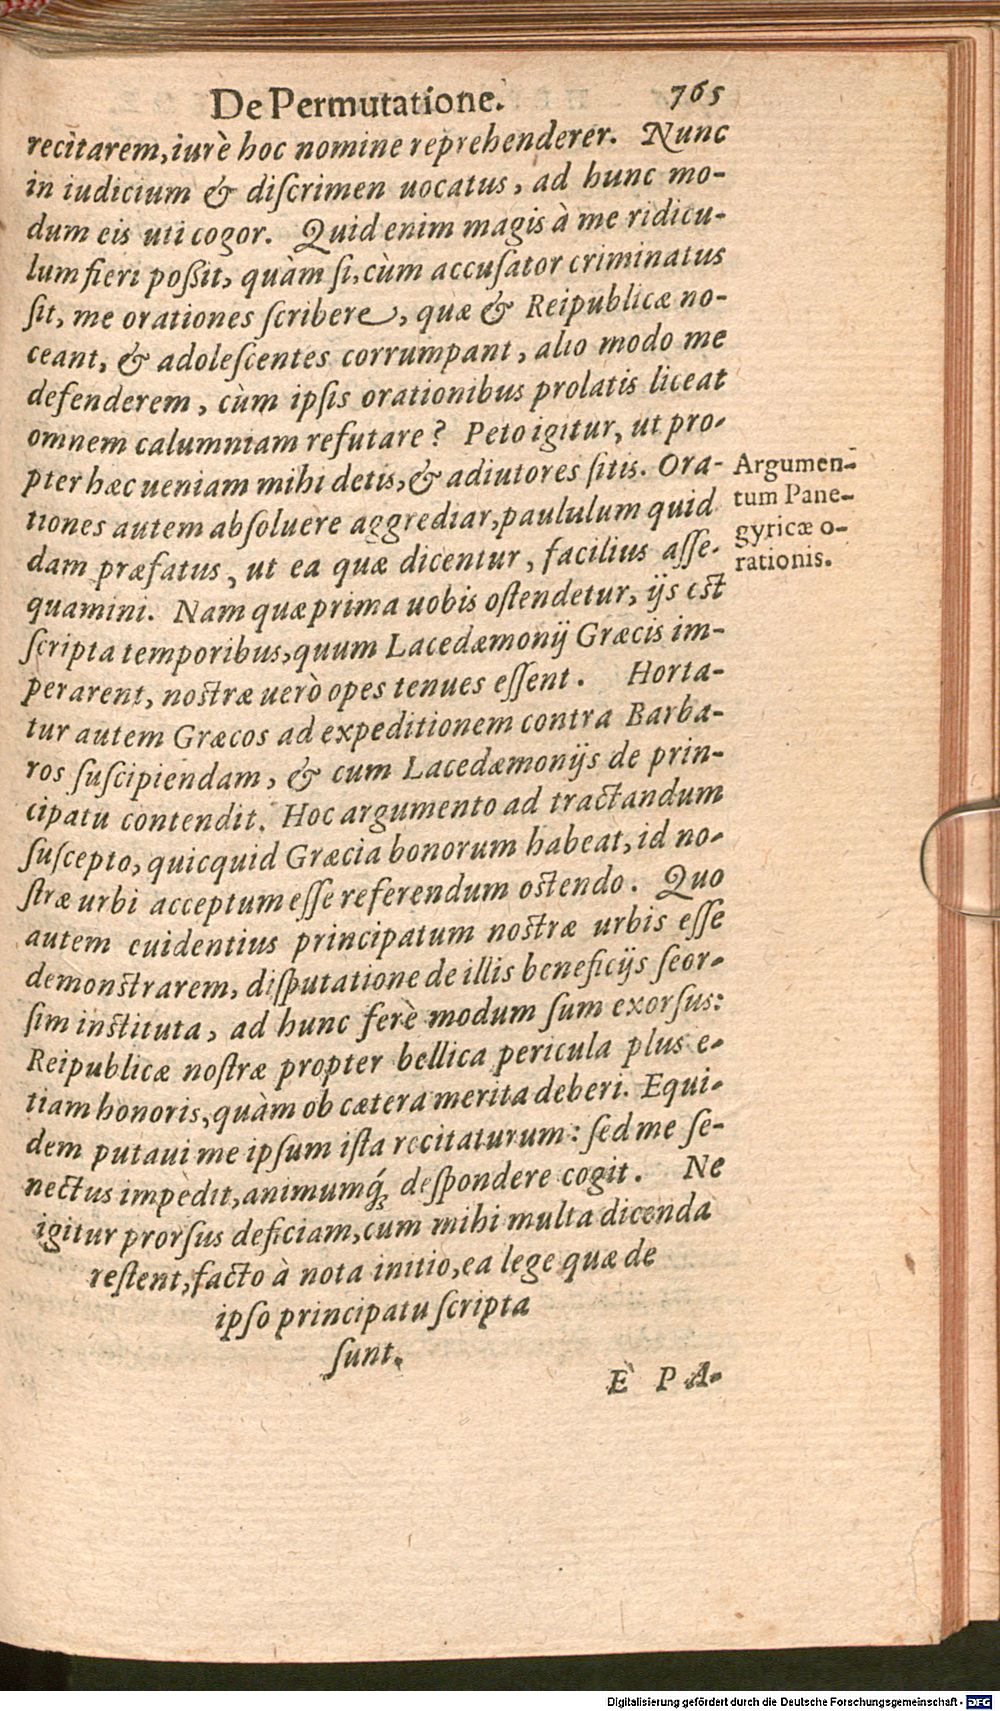 De Permutatione. 765
recitarem, iurè hoc nomine reprehenderer. Nunc
in iudicium & diſcrimen uocatus, ad hunc mo-
dum eis uti cogor. Quid enim magis à me ridicu-
lum fieri poßit, quàm ſi, cùm accuſator criminatus
ſit, me orationes ſcribere, quæ & Reipublicæ no-
ceant, & adoleſcentes corrumpant, alio modo me
defenderem, cùm ipſis orationibus prolatis liceat
omnem calumniam refutare? Peto igitur, ut pro-
pter hæc ueniam mihi detis, & adiutores ſitis. Ora-
tiones autem abſoluere aggrediar, paululum quid
dam præfatus, ut ea quæ dicentur, facilius aſſe-
quamini. Nam quæ prima uobis oſtendetur, ijs eſt
ſcripta temporibus, quum Lacedæmonij Græcis im-
perarent, noſtræ uerò opes tenues eſſent. Horta-
tur autem Græcos ad expeditionem contra Barba-
ros ſuſcipiendam, & cum Lacedæmonijs de prin-
cipatu contendit. Hoc argumento ad tractandum
ſuſcepto, quicquid Græcia bonorum habeat, id no-
ſtræ urbi acceptum eſſe referendum oſtendo. Quo
autem euidentius principatum noſtræ urbis eſſe
demonſtrarem, diſputatione de illis beneficijs ſeor-
ſim inſtituta, ad hunc ferè modum ſum exorſus:
Reipublicæ noſtræ propter bellica pericula plus e-
tiam honoris, quàm ob cætera merita deberi. Equi-
dem putaui me ipſum iſta recitaturum: ſed me ſe-
nectus impedit, animumq́; deſpondere cogit. Ne
igitur prorſus deficiam, cum mihi multa dicenda
reſtent, facto à nota initio, ea lege quæ de
ipſo principatu ſcripta
ſunt.
È PA-
Argumen-
tum Pane-
gyricæ o-
rationis.
Digitalisierung gefördert durch die Deutsche Forschungsgemeinschaft - DFG